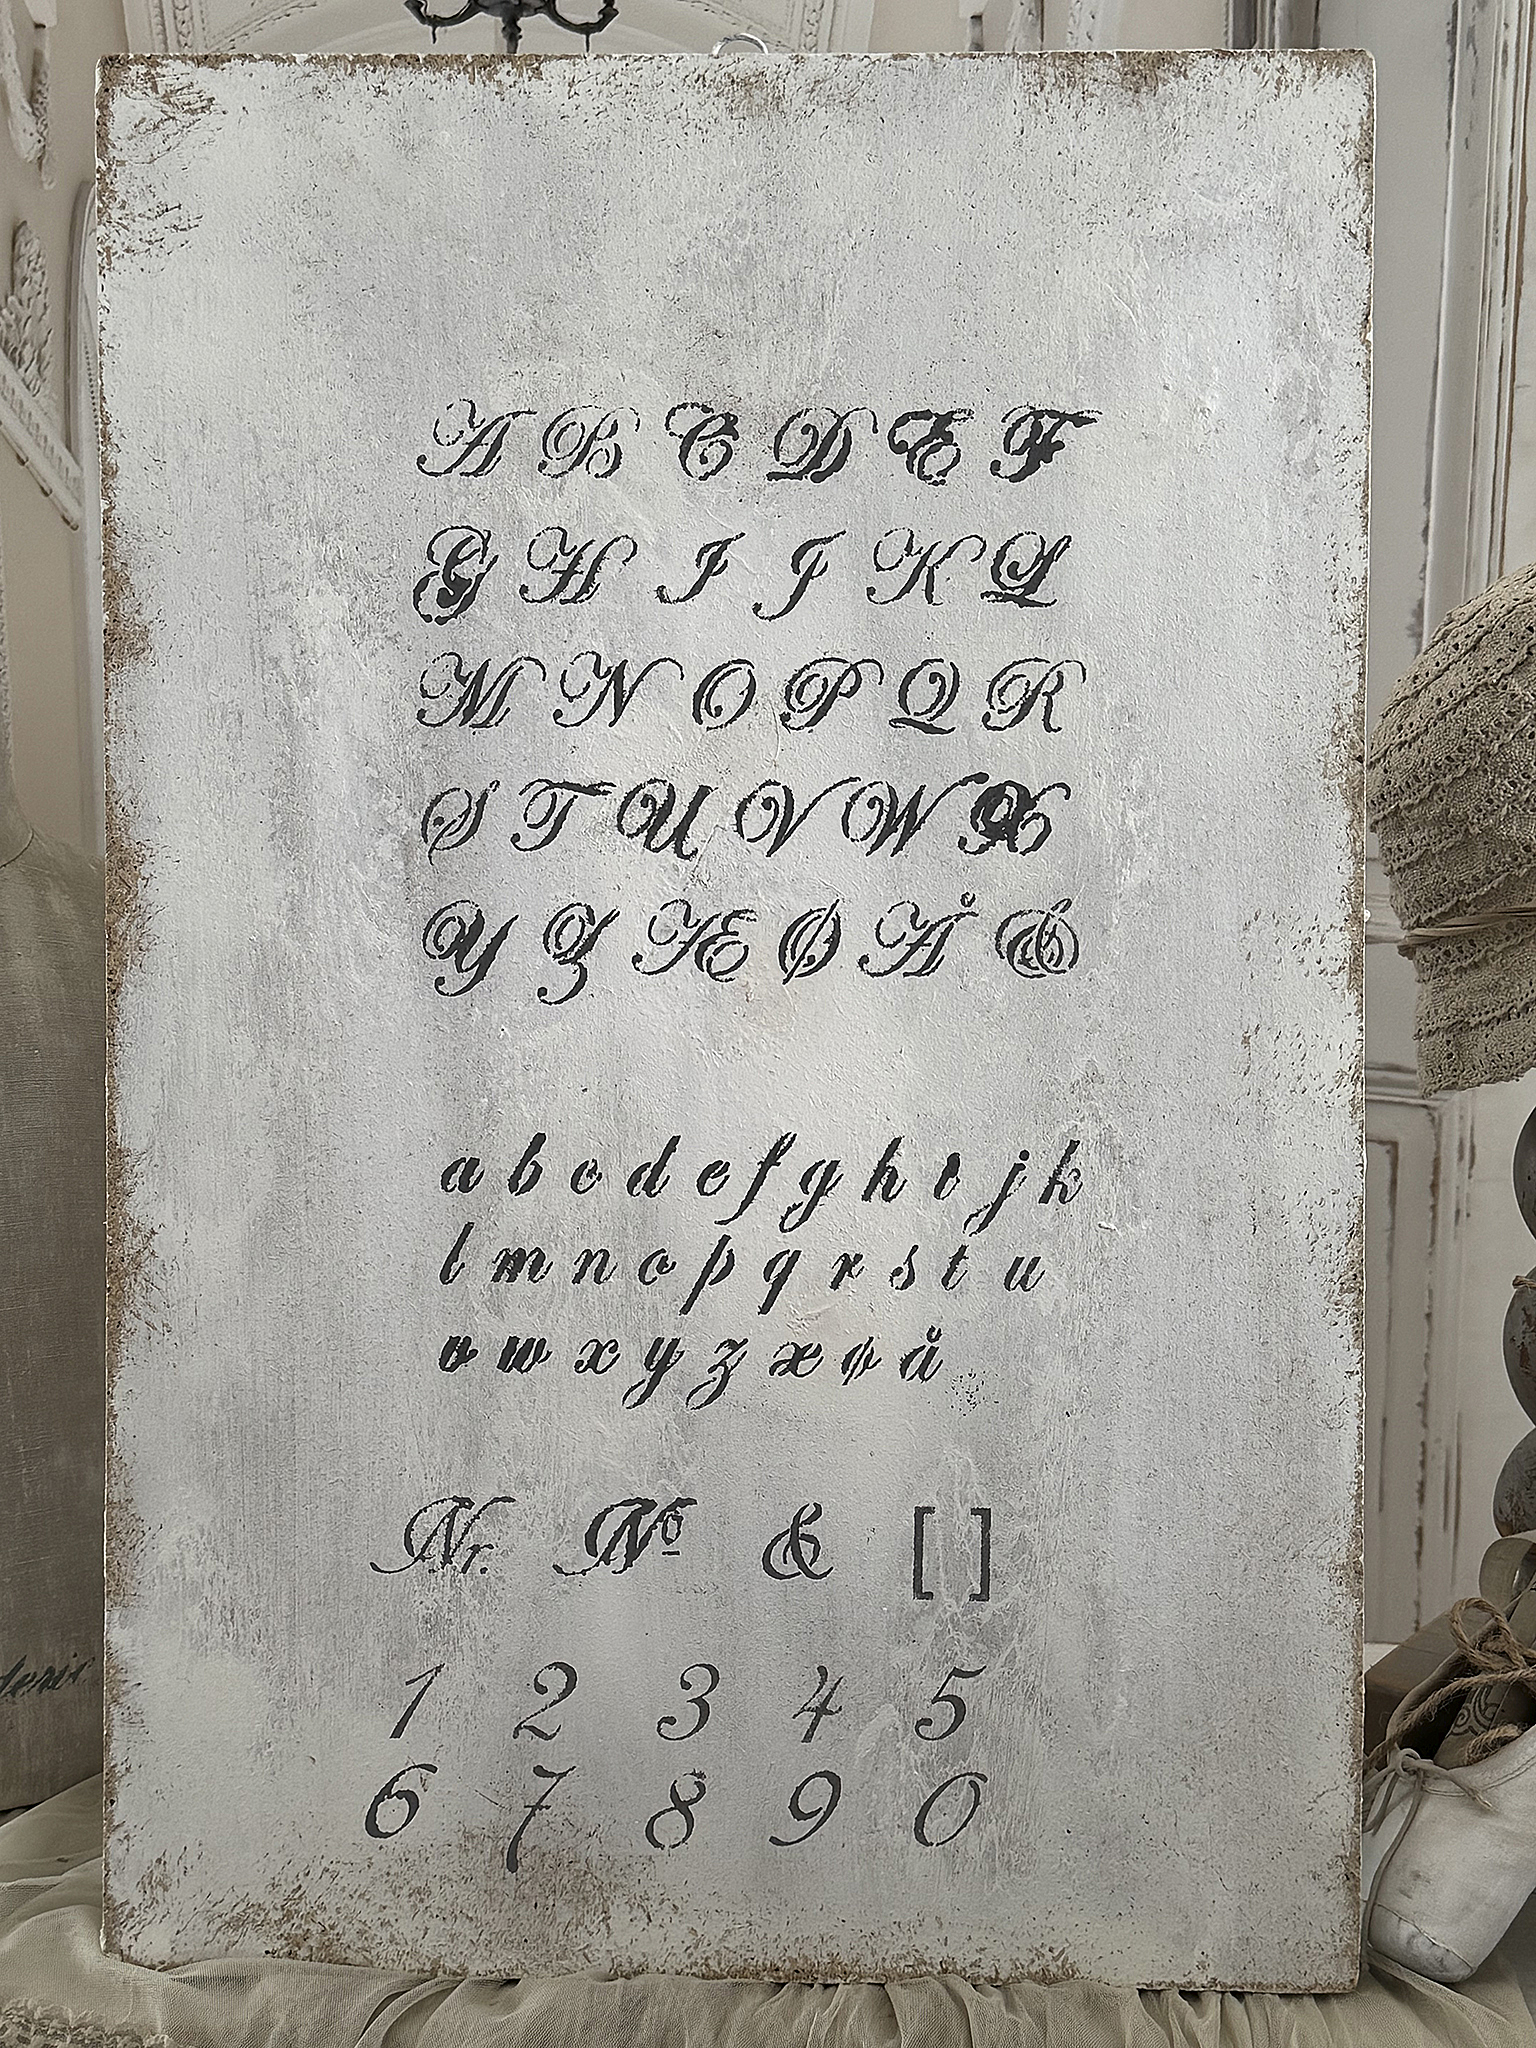 A B C D E F
G H I J K L
M N O P Q R
S T U V W X
Y Z Æ Ø Å &
a b c d e f g h i j k
l m n o p q r s t u
v w x y z æ ø å
Nr. Nº & [ ]
1 2 3 4 5
6 7 8 9 0